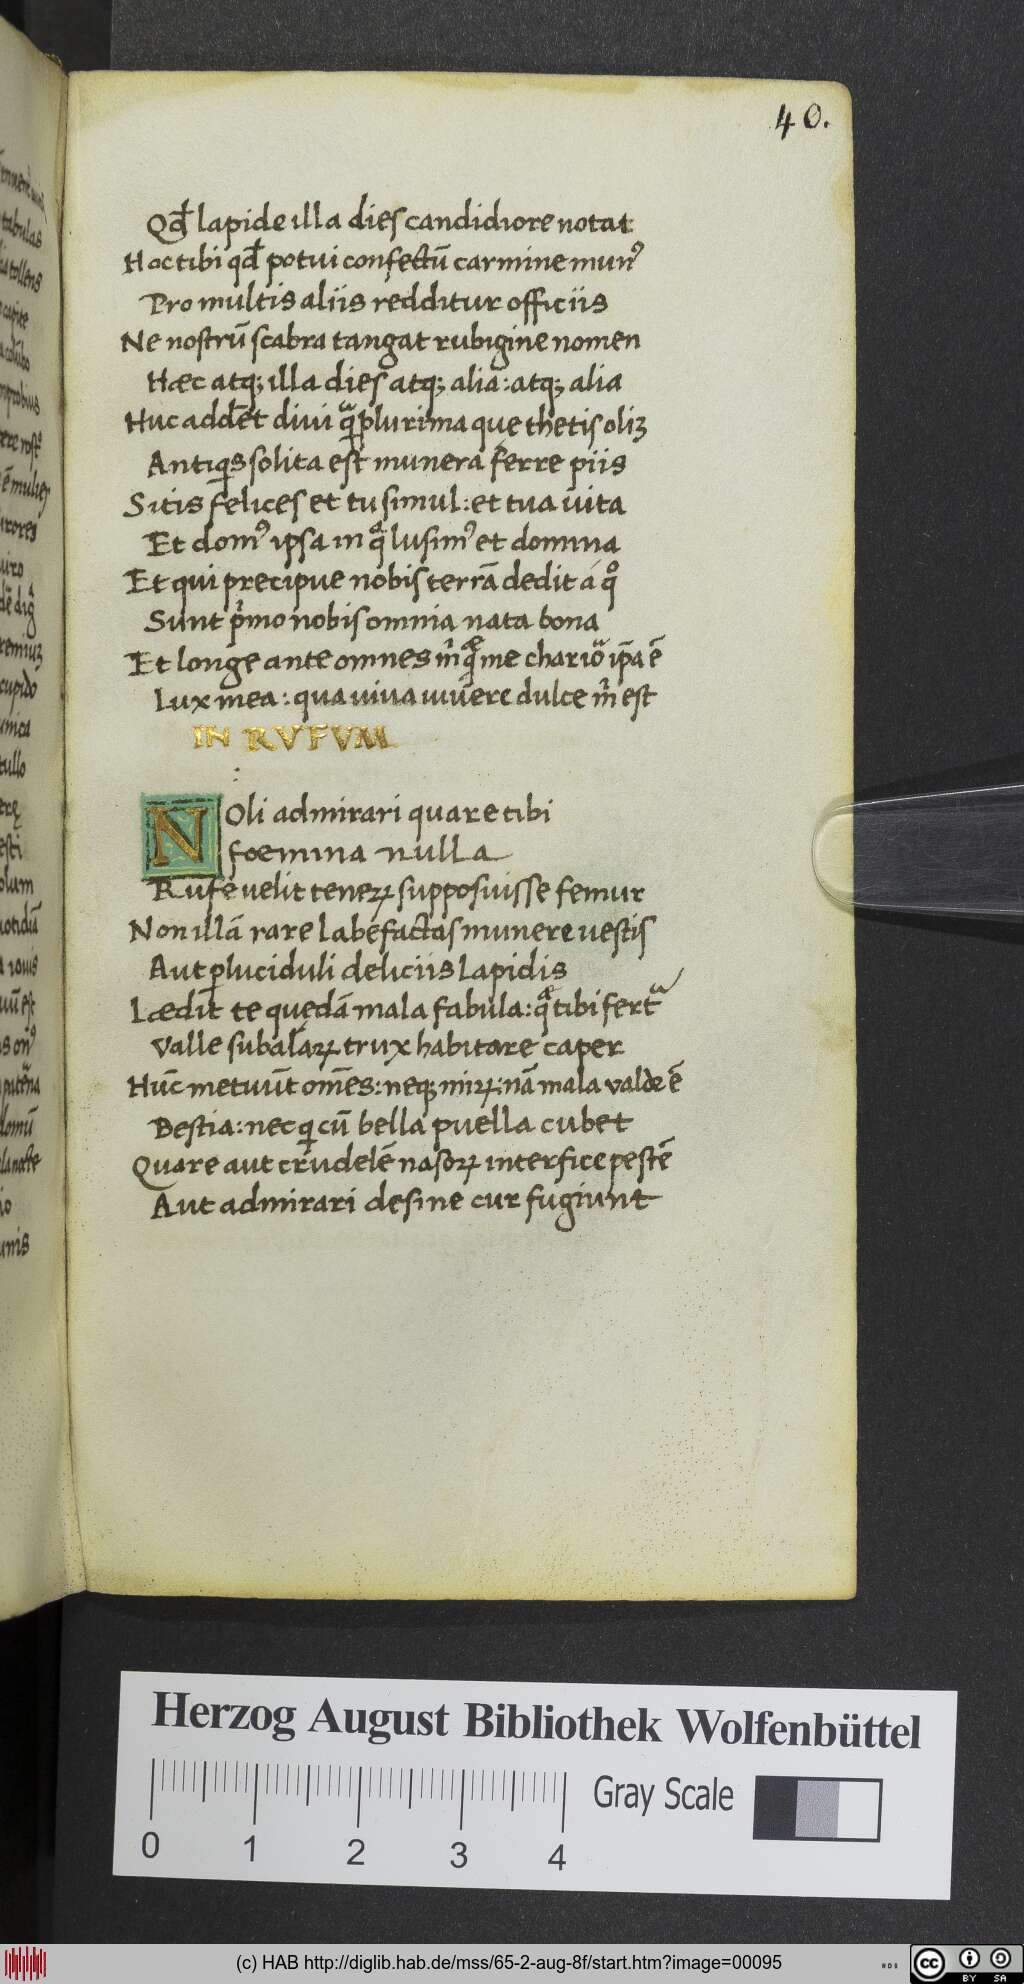 40.
Qd̄ lapide illa dies candidiore notat
Hoc tibi qd̄ potui confectū carmine munꝰ
Pro multis aliis redditur officiis
Ne nostrū scabra tangat rubigine nomen
Hæc atqꝫ illa dies atqꝫ alia: atqꝫ alia
Huc addēt divi qͣꝫ plurima que thetis oliꝫ
Antiqͥs solita est munera ferre piis
Sitis felices et tu simul: et tua vita
Et domꝰ ipsa in qͣ lusimꝰ et domina
Et qui precipue nobis terrā dedit á qͦ
Sunt pͥmo nobis omnia nata bona
Et longe ante omnes m̄ qͣe me chario ip̄a ē
Lux mea: qua viva vivere dulce m̄ est
IN RVFVM
NOli admirari quare tibi
foemina nulla
Rufe velit teneꝝ supposuisse femur
Non illā rare labefactas munere vestis
Aut ꝑluciduli deliciis lapidis
Lædit te quedā mala fabula: qͣ tibi fertͣ
Valle sub alaꝝ trux habitare caper
Hūc metuūt om̄es: neqꝫ miꝝ: nā mala valde ē
Bestia: nec qͥ cū bella puella cubet
Quare aut crudelē nasoꝝ interfice pestē
Aut admirari desine cur fugiunt
Herzog August Bibliothek Wolfenbüttel
Gray Scale
0 1 2 3 4
(c) HAB http://diglib.hab.de/mss/65-2-aug-8f/start.htm?image=00095
cc BY SA